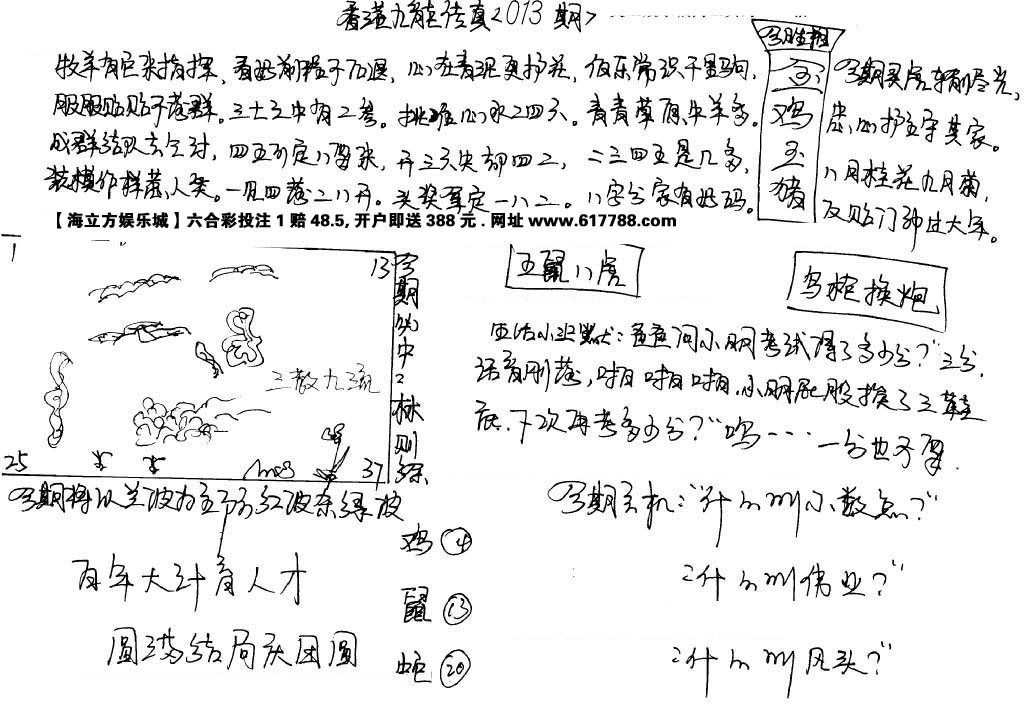 香港九龍传真<2013期>
牧羊有巨来指揮，看 前程不 退，心在春泥更护花，伯乐常识千里驹，
服服贴贴不落群。三十三中有二叁。挑 心水二四六。青青草原牛羊多。
成群结队去 对，四五 定八 ，开三六失却四二，二三四五是几多，
装模作样 人类。一见四落二八开。头奖 定一八二。八字分家有 码。
【海立方娱乐城】六合彩投注 1 赔 48.5, 开户即送 388 元 . 网址 www.617788.com
今期生肖
金鸡玉猪
今期买 ，
忠心护主守其家。
八月桂花九月菊，
反贴门神过大年。
1
13
25
37
三教九流
今期必中：林则徐
五鼠八虎
鸟枪换炮
生活小幽默：爸爸问小明考试得了多少分？"三分.
话音刚落，啪啪啪，小明屁股挨了三鞋
底.下次再考多少分？"呜……一分也不要.
今期将以兰波为主 红波杂绿波
百年大计育人才
圆满结局庆团圆
鸡 4
鼠 13
蛇 20
今期玄机："什么叫小数点？"
"什么叫伟业？"
"什么叫风头？"